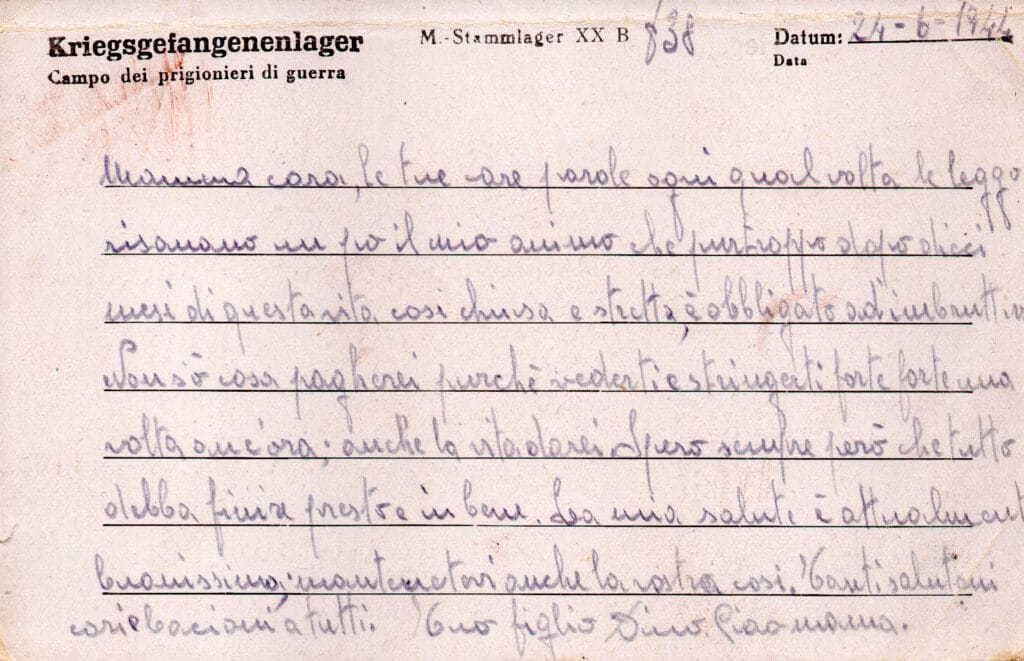 Kriegsgefangenenlager
Campo dei prigionieri di guerra
M.-Stammlager XX B 838
Datum: 24-6-1944
Data
Mamma cara, le tue care parole ogni qual volta le leggo
risanano un po il mio animo che purtroppo dopo dieci
mesi di questa vita cosi chiusa e stretta, è obbligato ad imbruttire
Non sò cosa pagherei purchè vederti e stringerti forte forte una
volta ancora; anche la vita darei. Spero sempre però che tutto
debba finire presto e in bene. La mia salute è attualment
buonissima; mantenetevi anche la vostra cosi. Tanti saluti
cari e bacioni a tutti. Tuo figlio Dino. Ciao mama.